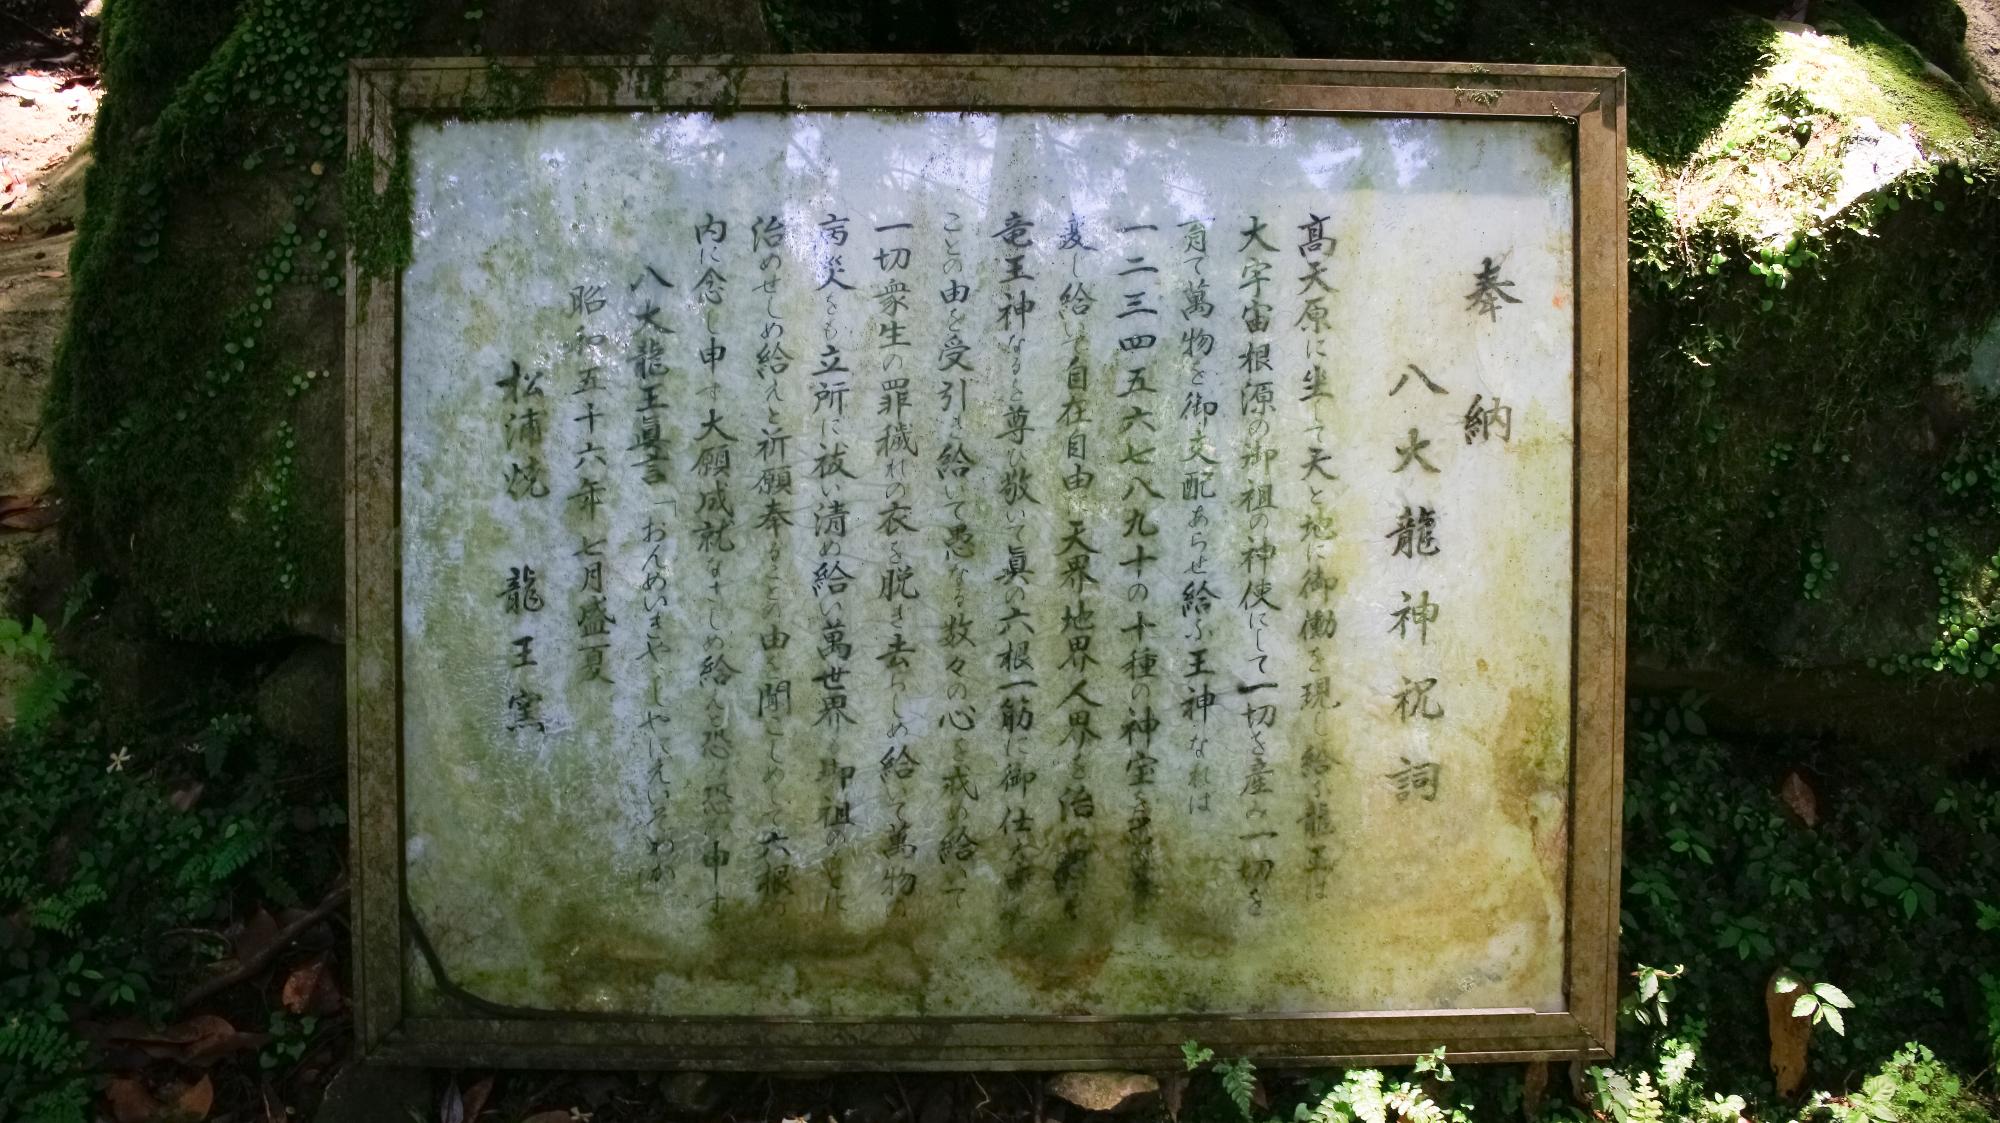 奉納
八大龍神祝詞
高天原に坐して天と地に御働を現し給ふ龍王は
大宇宙根源の御祖の神使にして一切を産み一切を
育て萬物を御支配あらせ給ふ王神なれは
一二三四五六七八九十の十種の神宝を
変し給いて自在自由天界地界人界を治め
竜王神なるを尊ひ敬いて眞の六根一筋に御仕え
ことの由を受引き給いて愚なる数々の心を戒め給いて
一切衆生の罪穢れの衣を脱き去らしめ給いて萬物の
病災をも立所に祓い清め給い萬世界も御祖のもとに
治めせしめ給えと祈願奉ることの由を聞こしめして六根の
内に念し申す大願成就なさしめ給えと恐み恐み申す
八大龍王眞言「おんめいきゃしゃにえいそわか」
昭和五十六年七月盛夏
松浦焼 龍王窯